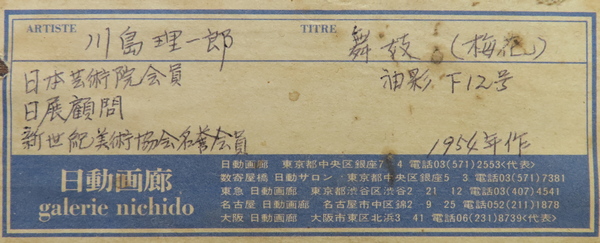 ARTISTE 川島理一郎 TITRE 舞妓 (梅花)
日本芸術院会員 油彩 F12号
日展顧問
新世紀美術協会名誉会員 1954年作
日動画廊
galerie nichido
日動画廊 東京都中央区銀座7-4 電話03(571)2553<代表>
数寄屋橋 日動サロン 東京都中央区銀座5-3 電話03(571)7381
東急 日動画廊 東京都渋谷区渋谷2-21-12 電話03(407)4541
名古屋 日動画廊 名古屋市中区錦2-9-25 電話052(211)1878
大阪 日動画廊 大阪市東区北浜3-41 電話06(231)8739<代表>